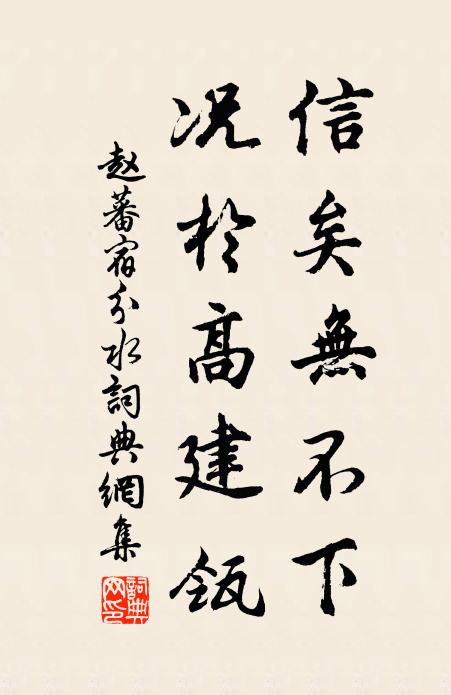 信矣無不下
况於高建瓴
赵蕃宿分水詞典網集
詞典网印